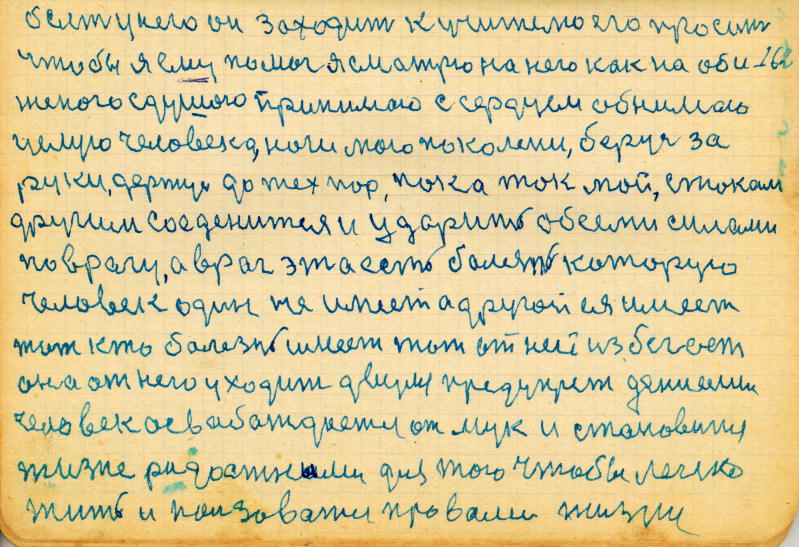 болт у него он заходит к учителю его просит
чтобы я ему помог я сматрю на него как на оби 162
женого с душою принимаю с сердцем обнимаю
целую человека, ноги мою по колени, беруч за
руки, держу до тех пор, пока ток мой, с током
другим соеденится и ударить обееми силами
по врагу, а враг эта есть болять которую
человек один не имеет а другой ея имеет
тот кто болезнь имеет тот от ней избегает
она от него уходит двумя предупреж дениеми
человек освабаждаетця от мук и становиця
жизне радостными для того чтобы легко
жить и ползоватця правами жизни